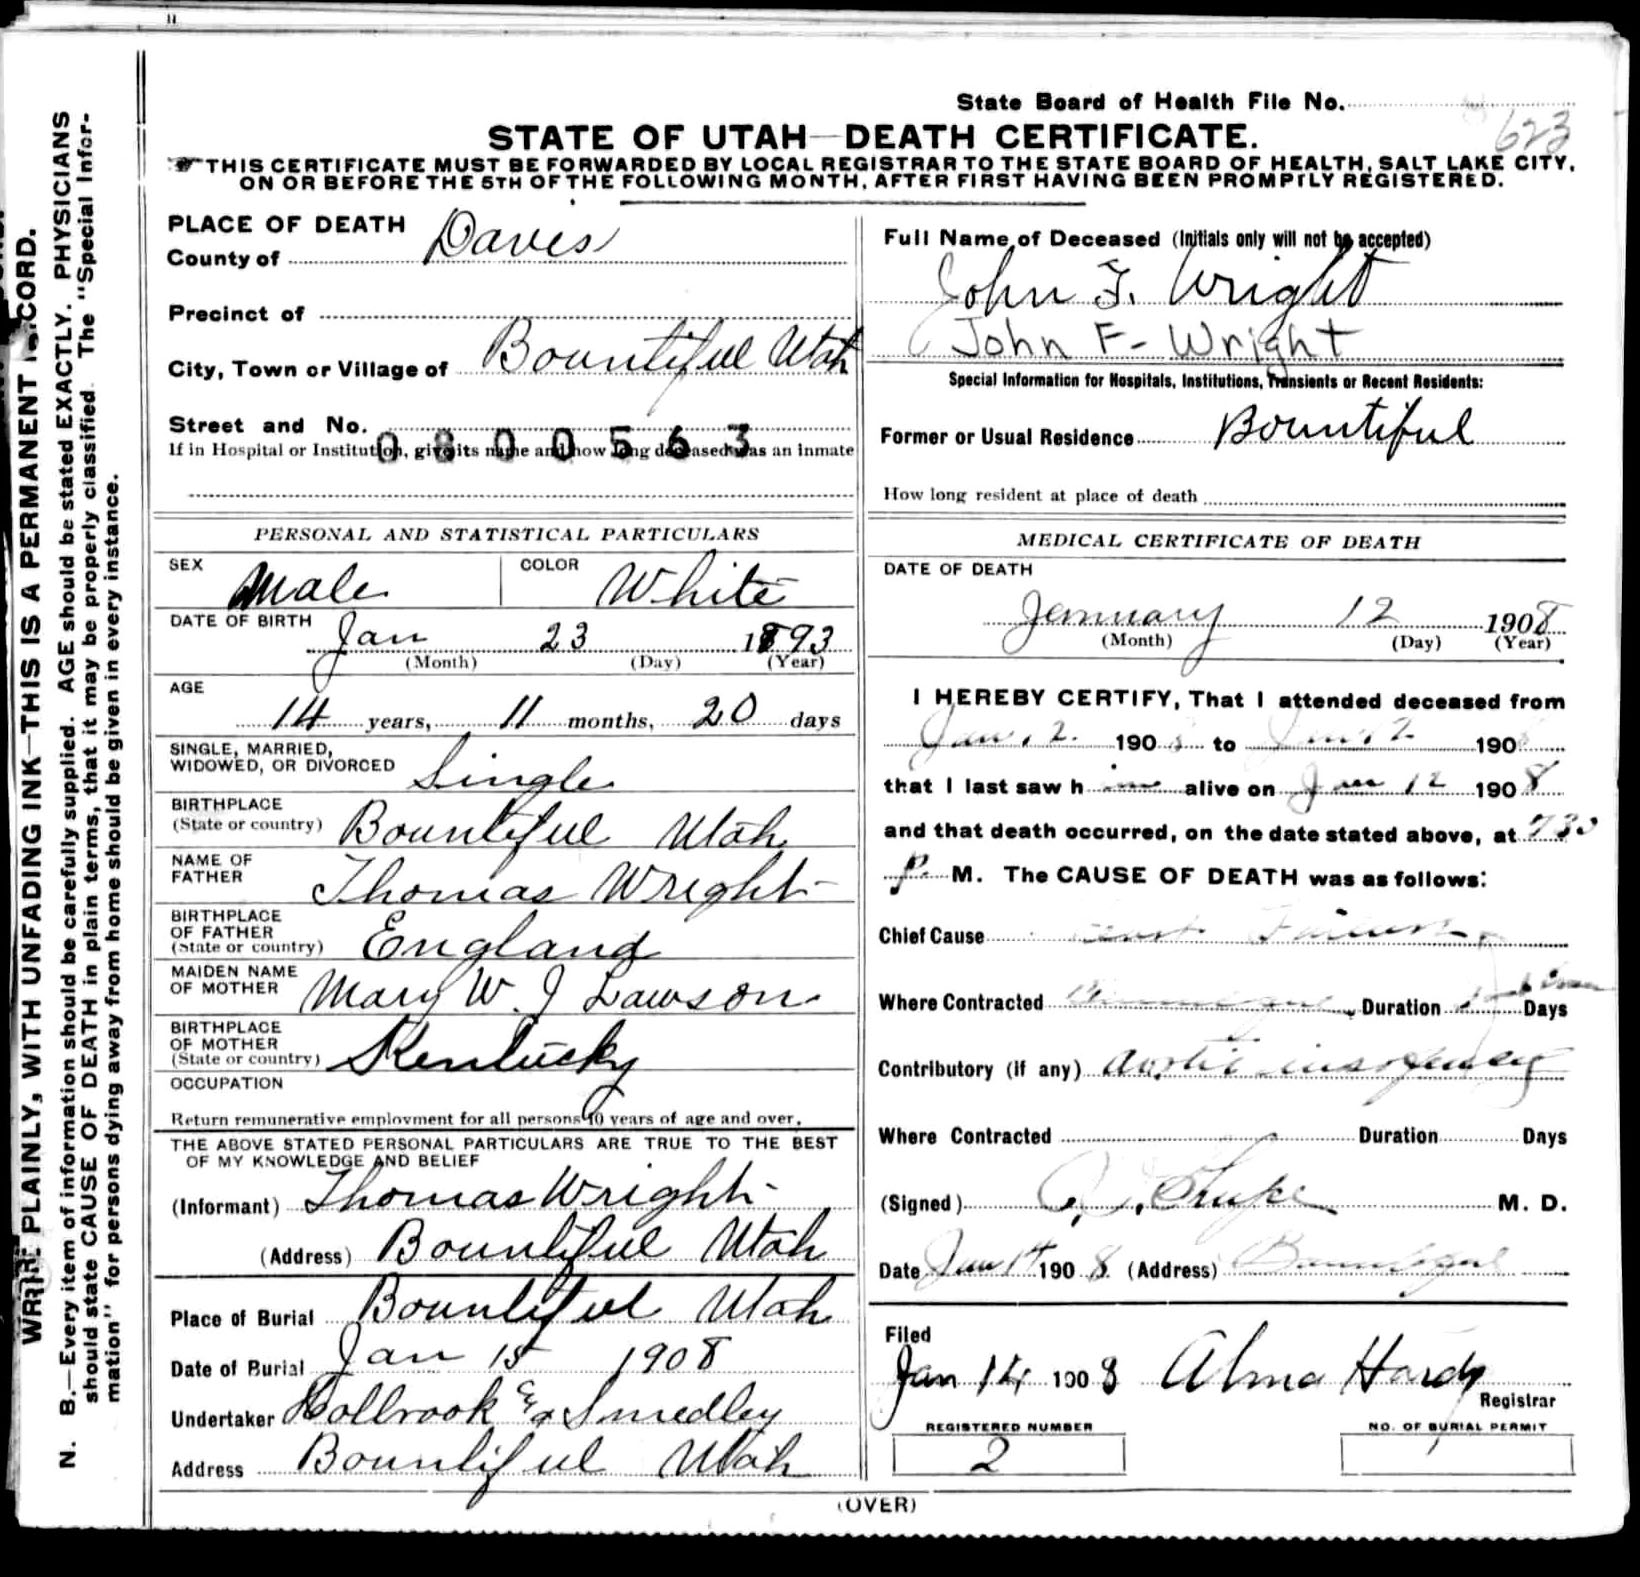 State Board of Health File No.
623
STATE OF UTAH—DEATH CERTIFICATE.
THIS CERTIFICATE MUST BE FORWARDED BY LOCAL REGISTRAR TO THE STATE BOARD OF HEALTH, SALT LAKE CITY,
ON OR BEFORE THE 5TH OF THE FOLLOWING MONTH, AFTER FIRST HAVING BEEN PROMPTLY REGISTERED.
WRITE PLAINLY, WITH UNFADING INK—THIS IS A PERMANENT RECORD.
N. B.—Every item of information should be carefully supplied. AGE should be stated EXACTLY. PHYSICIANS
should state CAUSE OF DEATH in plain terms, that it may be properly classified. The "Special Infor-
mation" for persons dying away from home should be given in every instance.
PLACE OF DEATH
County of Davis
Precinct of
City, Town or Village of Bountiful Utah
Street and No.
0800563
If in Hospital or Institution, give its name and how long deceased was an inmate
PERSONAL AND STATISTICAL PARTICULARS
SEX Male COLOR White
DATE OF BIRTH Jan 23 1893
(Month) (Day) (Year)
AGE
14 years, 11 months, 20 days
SINGLE, MARRIED,
WIDOWED, OR DIVORCED Single
BIRTHPLACE
(State or country) Bountiful Utah
NAME OF
FATHER Thomas Wright
BIRTHPLACE
OF FATHER
(State or country) England
MAIDEN NAME
OF MOTHER Mary W. J Lawson
BIRTHPLACE
OF MOTHER
(State or country) Kentucky
OCCUPATION
Return remunerative employment for all persons 10 years of age and over.
THE ABOVE STATED PERSONAL PARTICULARS ARE TRUE TO THE BEST
OF MY KNOWLEDGE AND BELIEF
(Informant) Thomas Wright
(Address) Bountiful Utah
Place of Burial Bountiful Utah
Date of Burial Jan 15 1908
Undertaker Holbrook & Smedley
Address Bountiful Utah
Full Name of Deceased (Initials only will not be accepted)
John F. Wright
John F- Wright
Special Information for Hospitals, Institutions, Transients or Recent Residents:
Former or Usual Residence Bountiful
How long resident at place of death
MEDICAL CERTIFICATE OF DEATH
DATE OF DEATH
January 12 1908
(Month) (Day) (Year)
I HEREBY CERTIFY, That I attended deceased from
Jan. 2. 1908 to Jan 12 1908
that I last saw him alive on Jan 12 1908
and that death occurred, on the date stated above, at 730
P. M. The CAUSE OF DEATH was as follows:
Chief Cause Heart Failure
Where Contracted Bountiful Duration Days
Contributory (if any) Aortic
Where Contracted Duration Days
(Signed) M. D.
Date Jan 14 1908. (Address) Bountiful
Filed
Jan 14 1908 Alma Hardy
Registrar
REGISTERED NUMBER
2
NO. OF BURIAL PERMIT
(OVER)